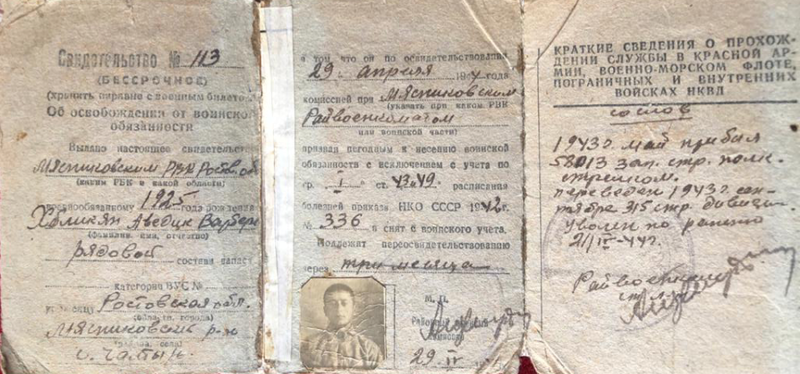 Свидетельство № 113
(БЕССРОЧНОЕ)
(хранить наравне с военным билетом)
Об освобождении от воинской
обязанности
Выдано настоящее свидетельство
Мясниковским РВК Рост. об
(каким РВК и какой области)
1925
года рождения
Аведик
(фамилия, имя, отчество)
рядовой состава запаса
категория ВУС №
Ростовская обл.
Мясниковский р-н
с. Чалтырь
в том, что он по освидетельствовании
29 апреля 1944 года
комиссией при Мясниковском
(указать при каком РВК
Райвоенкоматом
или воинской части)
признан негодным к несению воинской
обязанности с исключением с учета по
гр. I ст. расписания
болезней приказа НКО СССР 1942 г.
№ 336 и снят с воинского учета.
Подлежит переосвидетельствованию
через три месяца
М. П.
29 IV
КРАТКИЕ СВЕДЕНИЯ О ПРОХОЖ-
ДЕНИИ СЛУЖБЫ В КРАСНОЙ АР-
МИИ, ВОЕННО-МОРСКОМ ФЛОТЕ,
ПОГРАНИЧНЫХ И ВНУТРЕННИХ
ВОЙСКАХ НКВД
1943 г. май прибыл
зап. стр. полк
стрелком.
переведен 1943 г. сен-
тября 315 стр. дивизии
уволен по ранению
21/IV-44 г.